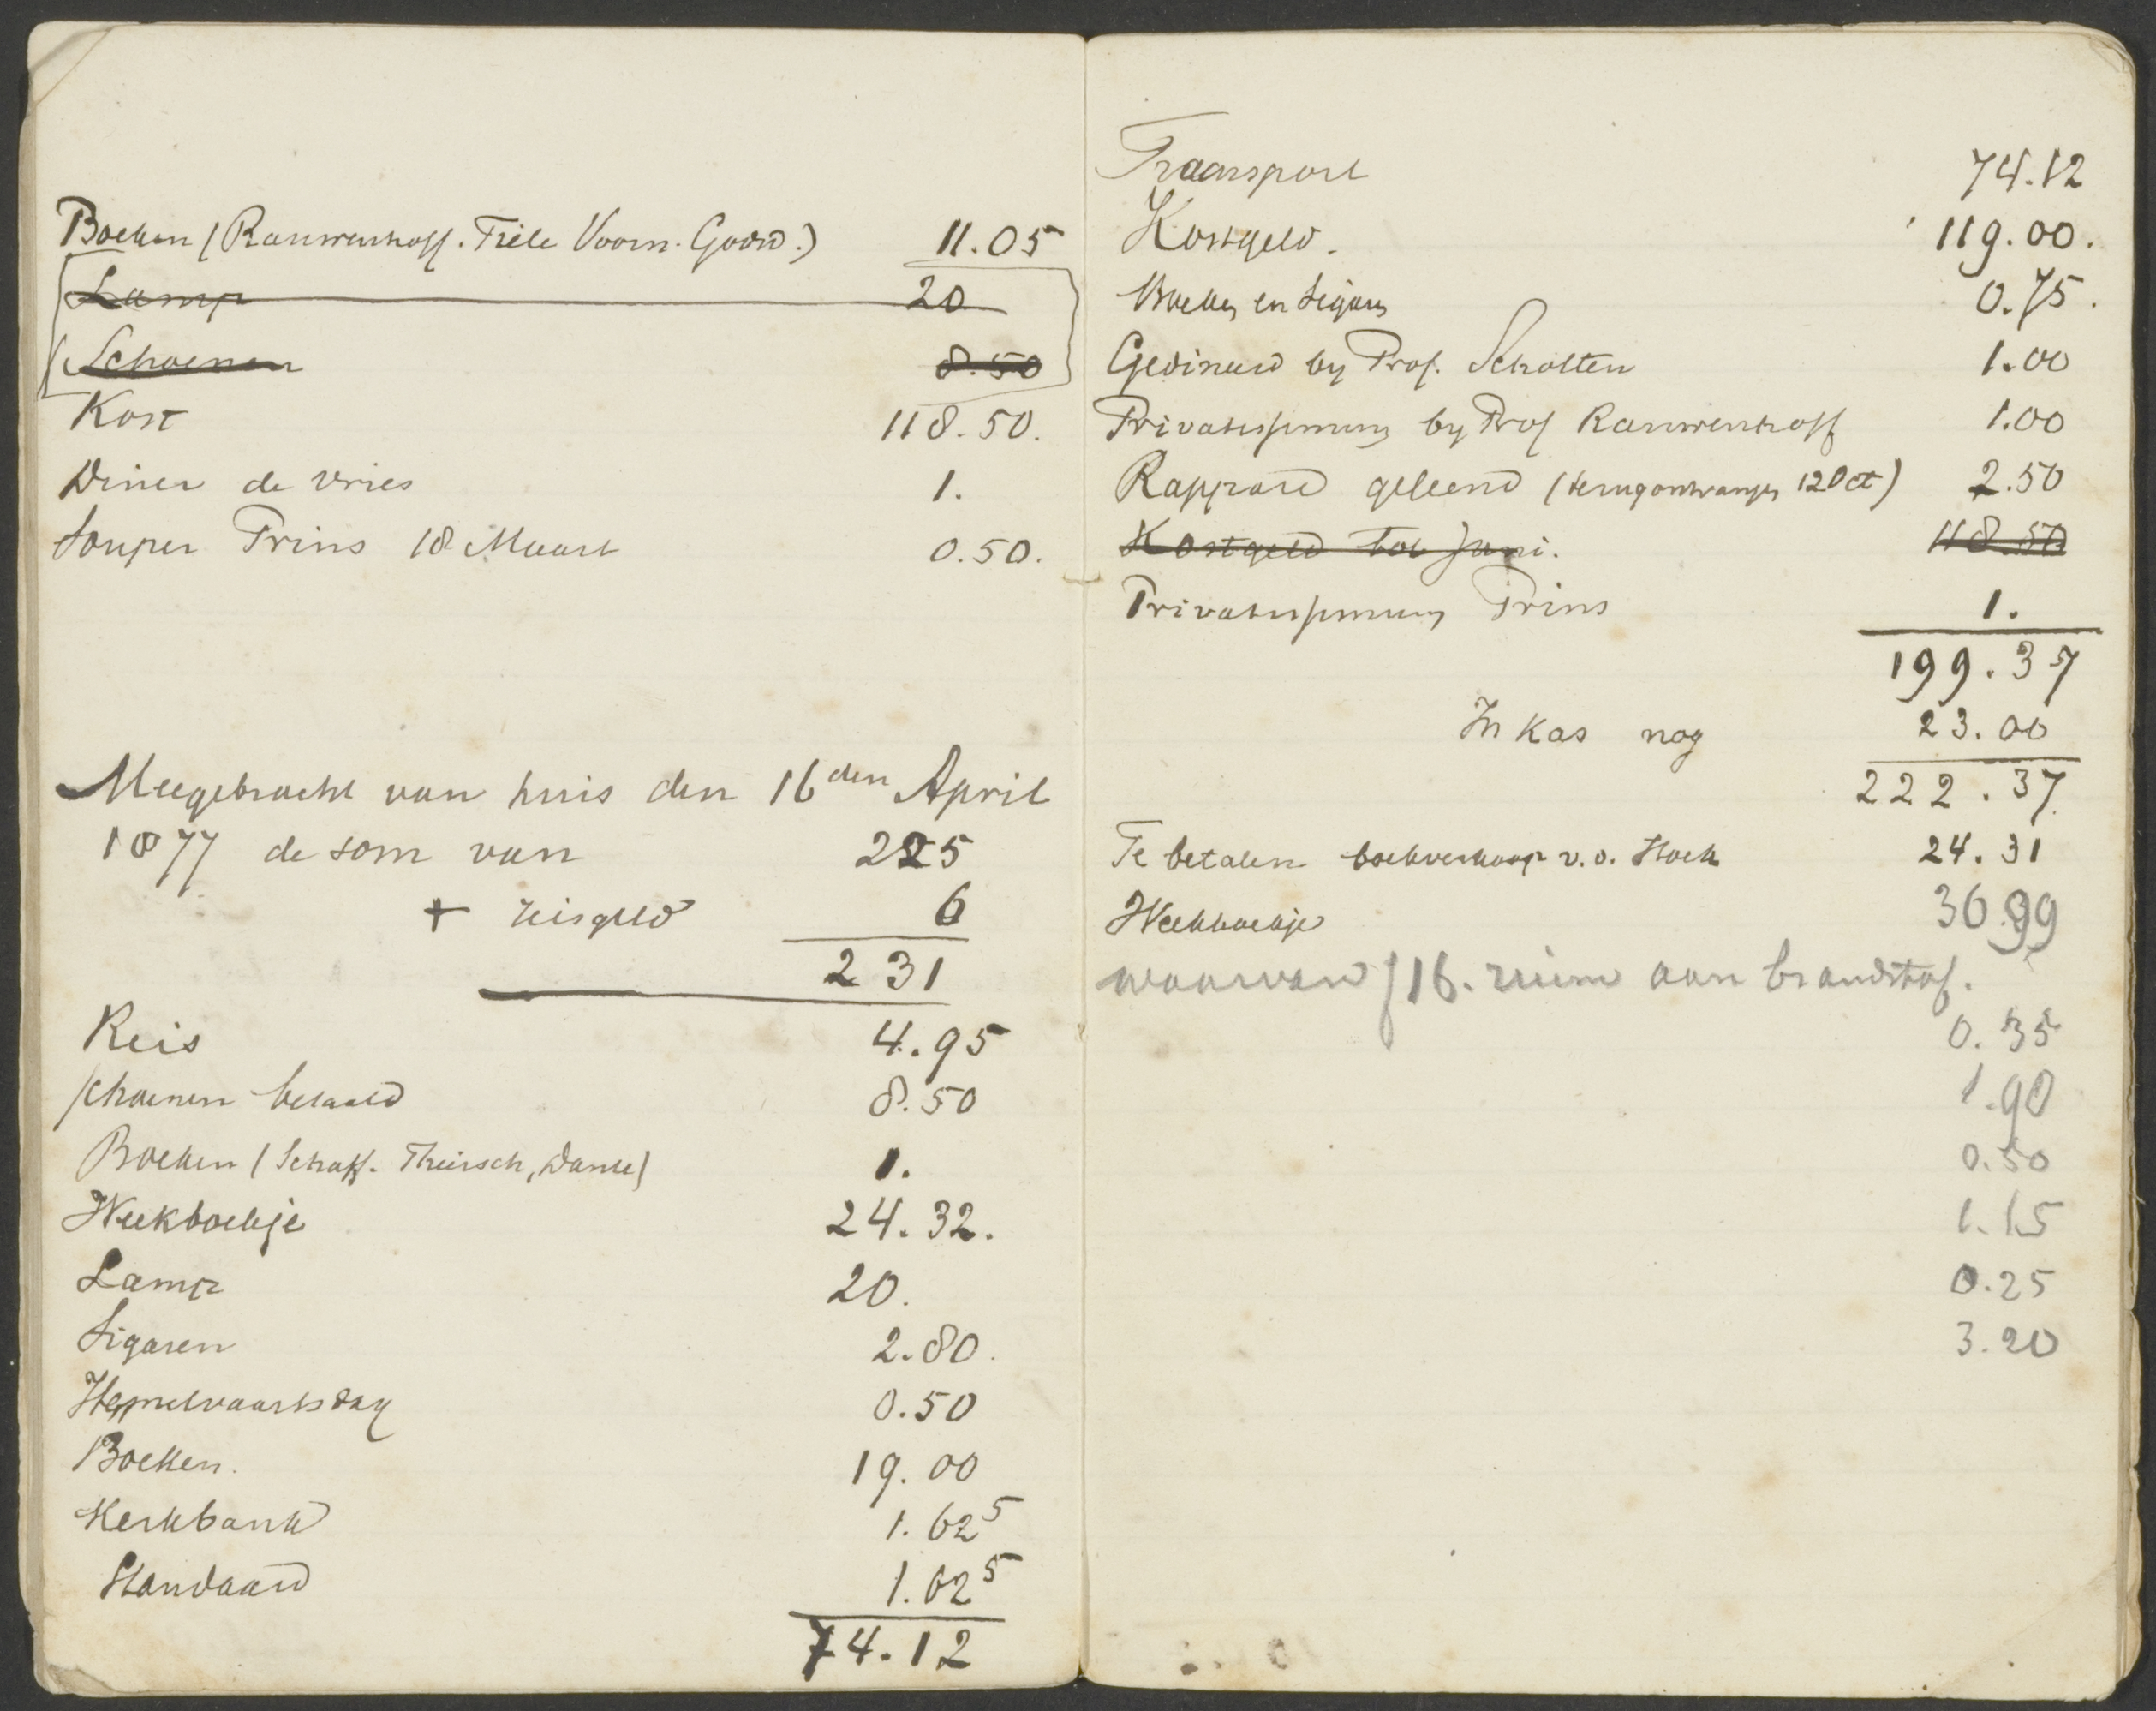 Boeken (Rauwenhoff. Tiele Voorn. Godsd.) 11.05
Lamp 20
Schoenen 8.50
Kost 118.50.
Diner de Vries 1.
Souper Prins 18 Maart 0.50.
Meegebracht van huis den 16den April
1877 de som van 225
+ reisgeld 6
231
Reis 4.95
schoenen betaald 8.50
Boeken (Schaff. Thiersch, Dante) 1.
Weekboekje 24.32.
Lamp 20.
Sigaren 2.80.
Hemelvaartsdag 0.50
Boeken. 19.00
Kerkbank 1.62⁵
Standaard 1.62⁵
74.12
Transport 74.12
Kostgeld. 119.00.
Boeken en Sigaren 0.75.
Gedineerd by Prof. Scholten 1.00
Privatissimum by Prof Rauwenhoff 1.00
Rappard geleend (terugontvangen 12 Oct) 2.50
Kostgeld tot Juni. 118.50
Privatissimum Prins 1.
199.37
In kas nog 23.00
222.37
Te betalen boekverkoop v.d. Hoek 24.31
Weekboekje 36.99
waarvan f 16. riem aan brandstof.
0.35
1.90
0.50
1.15
0.25
3.20